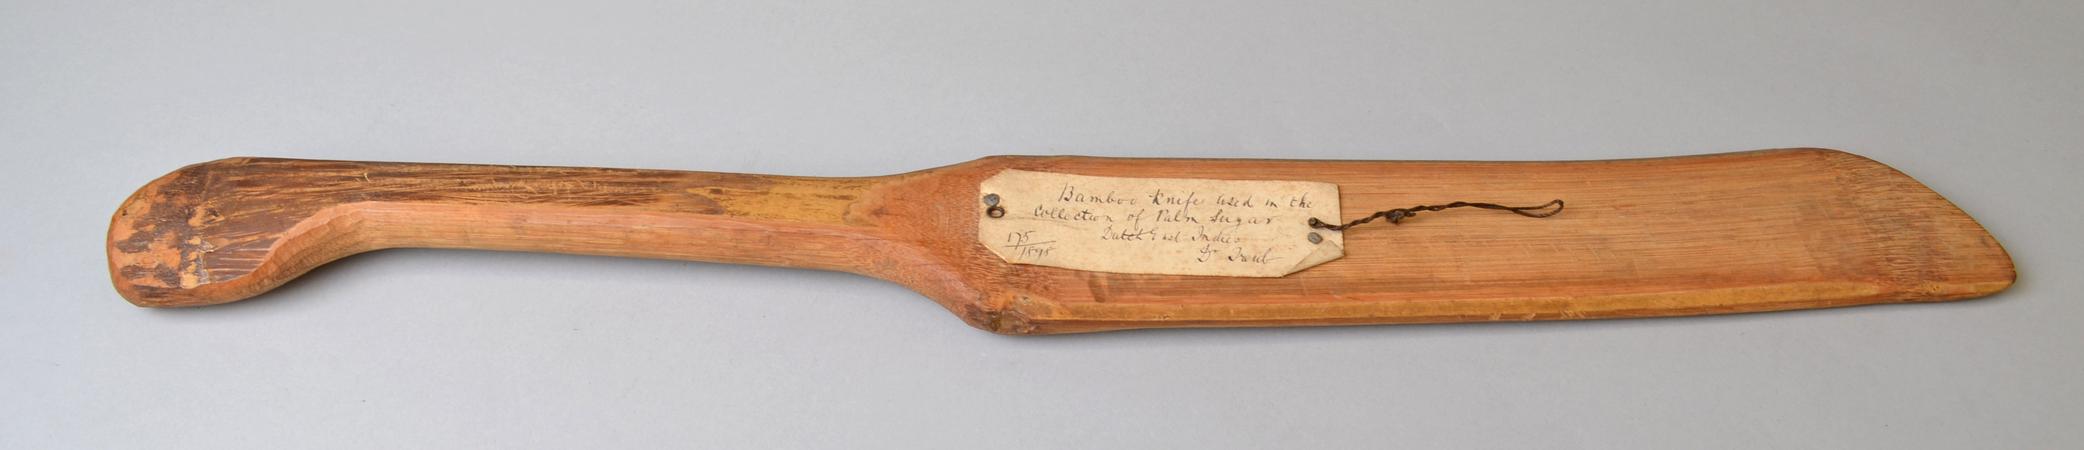 Bamboo knife used in the
Collection of Palm Sugar
Dutch East Indies
175
1898
Dr Treub